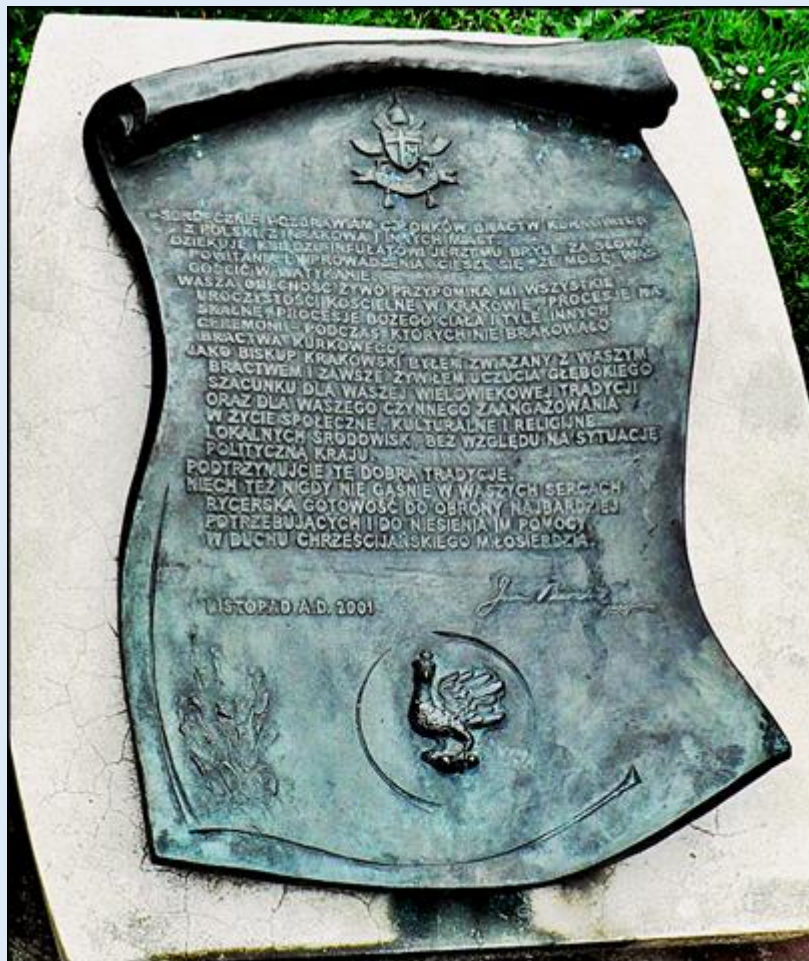 SERDECZNIE POZDRAWIAM CZŁONKÓW BRACTW KURKOWYCH
Z POLSKI, Z KRAKOWA I INNYCH MIAST.
DZIĘKUJĘ KSIĘDZU INFUŁATOWI JERZEMU BRYLE ZA SŁOWA
POWITANIA I WPROWADZENIA. CIESZĘ SIĘ, ŻE MOGĘ WAS
GOŚCIĆ W WATYKANIE.
WASZA OBECNOŚĆ ŻYWO PRZYPOMINA MI WSZYSTKIE
UROCZYSTOŚCI KOŚCIELNE W KRAKOWIE, PROCESJE NA
SKAŁKĘ, PROCESJE BOŻEGO CIAŁA I TYLE INNYCH
CEREMONII - PODCZAS KTÓRYCH NIE BRAKOWAŁO
BRACTWA KURKOWEGO.
JAKO BISKUP KRAKOWSKI BYŁEM ZWIĄZANY Z WASZYM
BRACTWEM I ZAWSZE ŻYWIŁEM UCZUCIA GŁĘBOKIEGO
SZACUNKU DLA WASZEJ WIELOWIEKOWEJ TRADYCJI
ORAZ DLA WASZEGO CZYNNEGO ZAANGAŻOWANIA
W ŻYCIE SPOŁECZNE, KULTURALNE I RELIGIJNE
LOKALNYCH ŚRODOWISK, BEZ WZGLĘDU NA SYTUACJĘ
POLITYCZNĄ KRAJU.
PODTRZYMUJCIE TĘ DOBRĄ TRADYCJĘ.
NIECH TEŻ NIGDY NIE GAŚNIE W WASZYCH SERCACH
RYCERSKA GOTOWOŚĆ DO OBRONY NAJBARDZIEJ
POTRZEBUJĄCYCH I DO NIESIENIA IM POMOCY
W DUCHU CHRZEŚCIJAŃSKIEGO MIŁOSIERDZIA.
LISTOPAD A.D. 2001